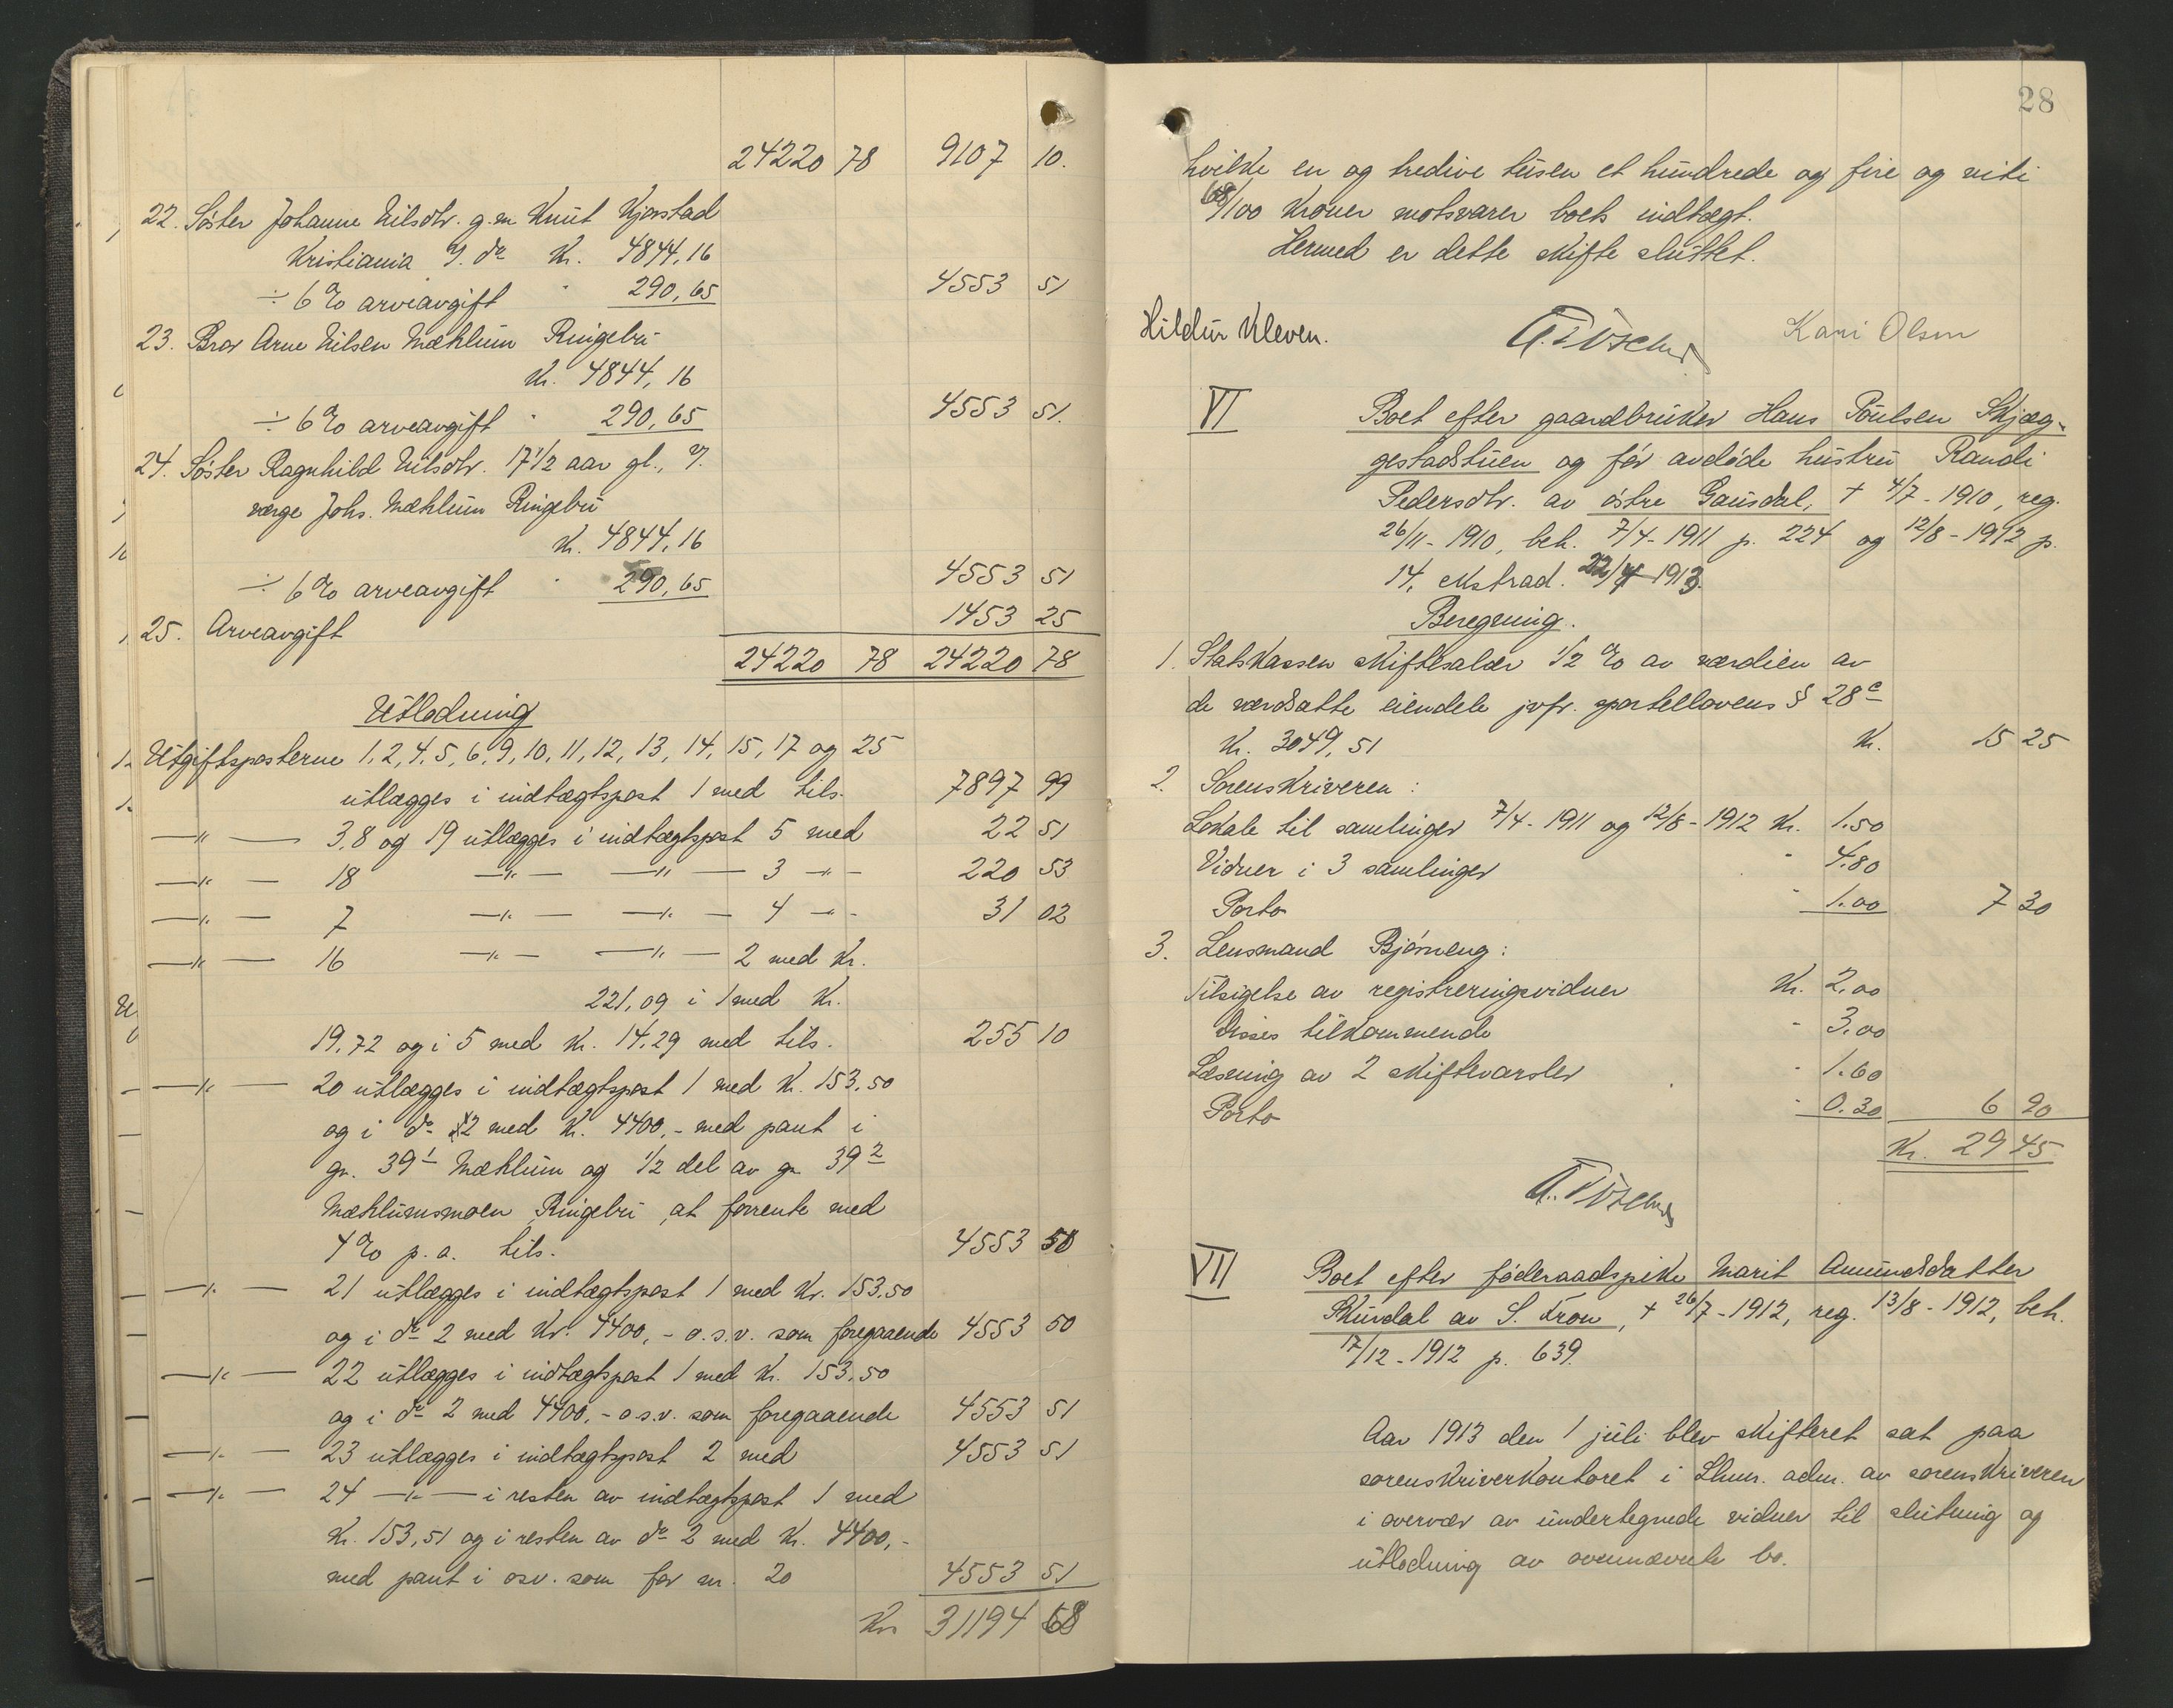 24220 78 9107 10.
22. Søster Johanne Nilsdtr. g.m. Knut Kjorstad
Kristiania, y. do Kr. 4844,16
÷ 6 % arveavgift " 290,65 4553 51
23. Bror Arne Nilsen Mæhlum Ringebu
Kr. 4844,16
÷ 6 % arveavgift " 290,65 4553 51.
24. Søster Ragnhild Nilsdtr. 17 1/2 aar gl., y.
verge Johs. Mæhlum Ringebu
Kr. 4844,16
÷ 6 % arveavgift " 290,65 4553 51
25. Arveavgift 1453 25
24220 78 24220 78
Utlodning
1. Utgiftsposterne 1, 2, 4, 5, 6, 9, 10, 11, 12, 13, 14, 15, 17 og 25
utlægges i indtægtspost 1 med tils. 7897 99
—"— 3, 8 og 19 utlægges i indtægtspost 5 med 22 51
—"— 18 —"— —"— 3 —"— 220 53
—"— 7 —"— —"— 4 —"— 31 02
—"— 16 —"— —"— 2 med Kr.
221,09 i 1 med Kr.
19,72 og i 5 med Kr. 14,29 med tils. 255 10
—"— 20 utlægges i indtægtspost 1 med Kr. 153,50
og i do 2 med Kr. 4400,- med pant i
gr. 39 1 Mæhlum og 1/2 del av gr 39 2
Mæhlumsmoen, Ringebu, at forrente med
4 % p. a. tils. 4553 50
—"— 21 utlægges i indtægtspost 1 med Kr. 153,50
og i do 2 med Kr. 4400,- o.s.v. som foregaaende 4553 50
—"— 22 utlægges i indtægtspost 1 med Kr. 153,50
og i do 2 med 4400,- o.s.v. som foregaaende 4553 51
—"— 23 utlægges i indtægtspost 2 med 4553 51
—"— 24 —"— i resten av indtægtspost 1 med
Kr. 153,51 og i resten av do 2 med Kr. 4400,-
med pant i osv. som for nr. 20 4553 51
Kr 31194 68
28
hvilke en og tredive tusen et hundrede og fire og niti
68/100 Kroner motsvarer boets indtægt.
Hermed er dette skifte sluttet.
Hildur Kleven. Kari Olsen
VI Boet efter gaardbruker Hans Poulsen Skjæg-
gestadstuen og før avdøde hustru Randi
Pedersdtr. av østre Gausdal, † 4/7 - 1910, reg.
26/11 - 1910, beh. 7/4 - 1911 p. 224 og 12/8 - 1912 p.
14, ekstrad. 22/4 1913.
Beregning.
1. Statskassen skiftesalær 1/2 % av værdien av
de værdsatte eiendele jvfr. sportellovens § 28 c
Kr. 3049,51 Kr. 15 25
2. Sorenskriveren:
Lokale til samlinger 7/4 - 1911 og 12/8 - 1912 Kr. 1.50
Vidner i 3 samlinger " 4.80
Porto " 1.00 7 30
3. Lensmand Bjørneng:
Tilsigelse av registreringsvidner Kr. 2,00
disses tilkommende " 3,00
Læsning av 2 skiftevarsler " 1.60
Porto " 0.30 6 90
Kr. 29 45
VII Boet efter føderaadspike Marit Amundsdatter
Skurdal av S. Fron, † 26/7 - 1912, reg. 13/8 - 1912, beh.
17/12 - 1912 p. 639.
Aar 1913 den 1 juli blev skifteret sat paa
sorenskriverkontoret i Lhmr. adm. av sorenskriveren
i overvær av undertegnede vidner til slutning og
utlodning av ovennævnte bo.